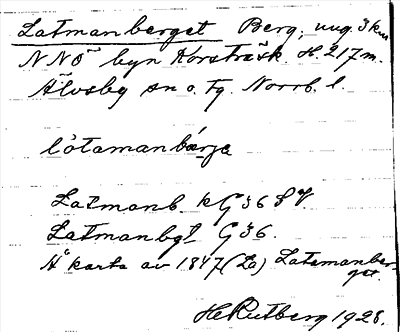 Latmanberget Berg, ung. 3 km
NNO byn Korsträsk. H. 217 m.
Älvsby sn o. tg. Norrb. l.
låtamanbárja
Latmanb. kG36 SV
Latmanbgt G36.
Ä karta av 1847 (La) Latamanber-
get.
H Rutberg 1928.